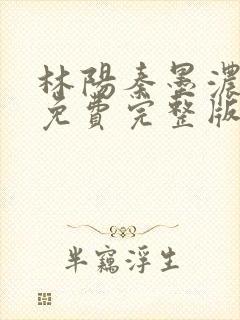 林陽秦墨濃
免費完整版
半竊浮生